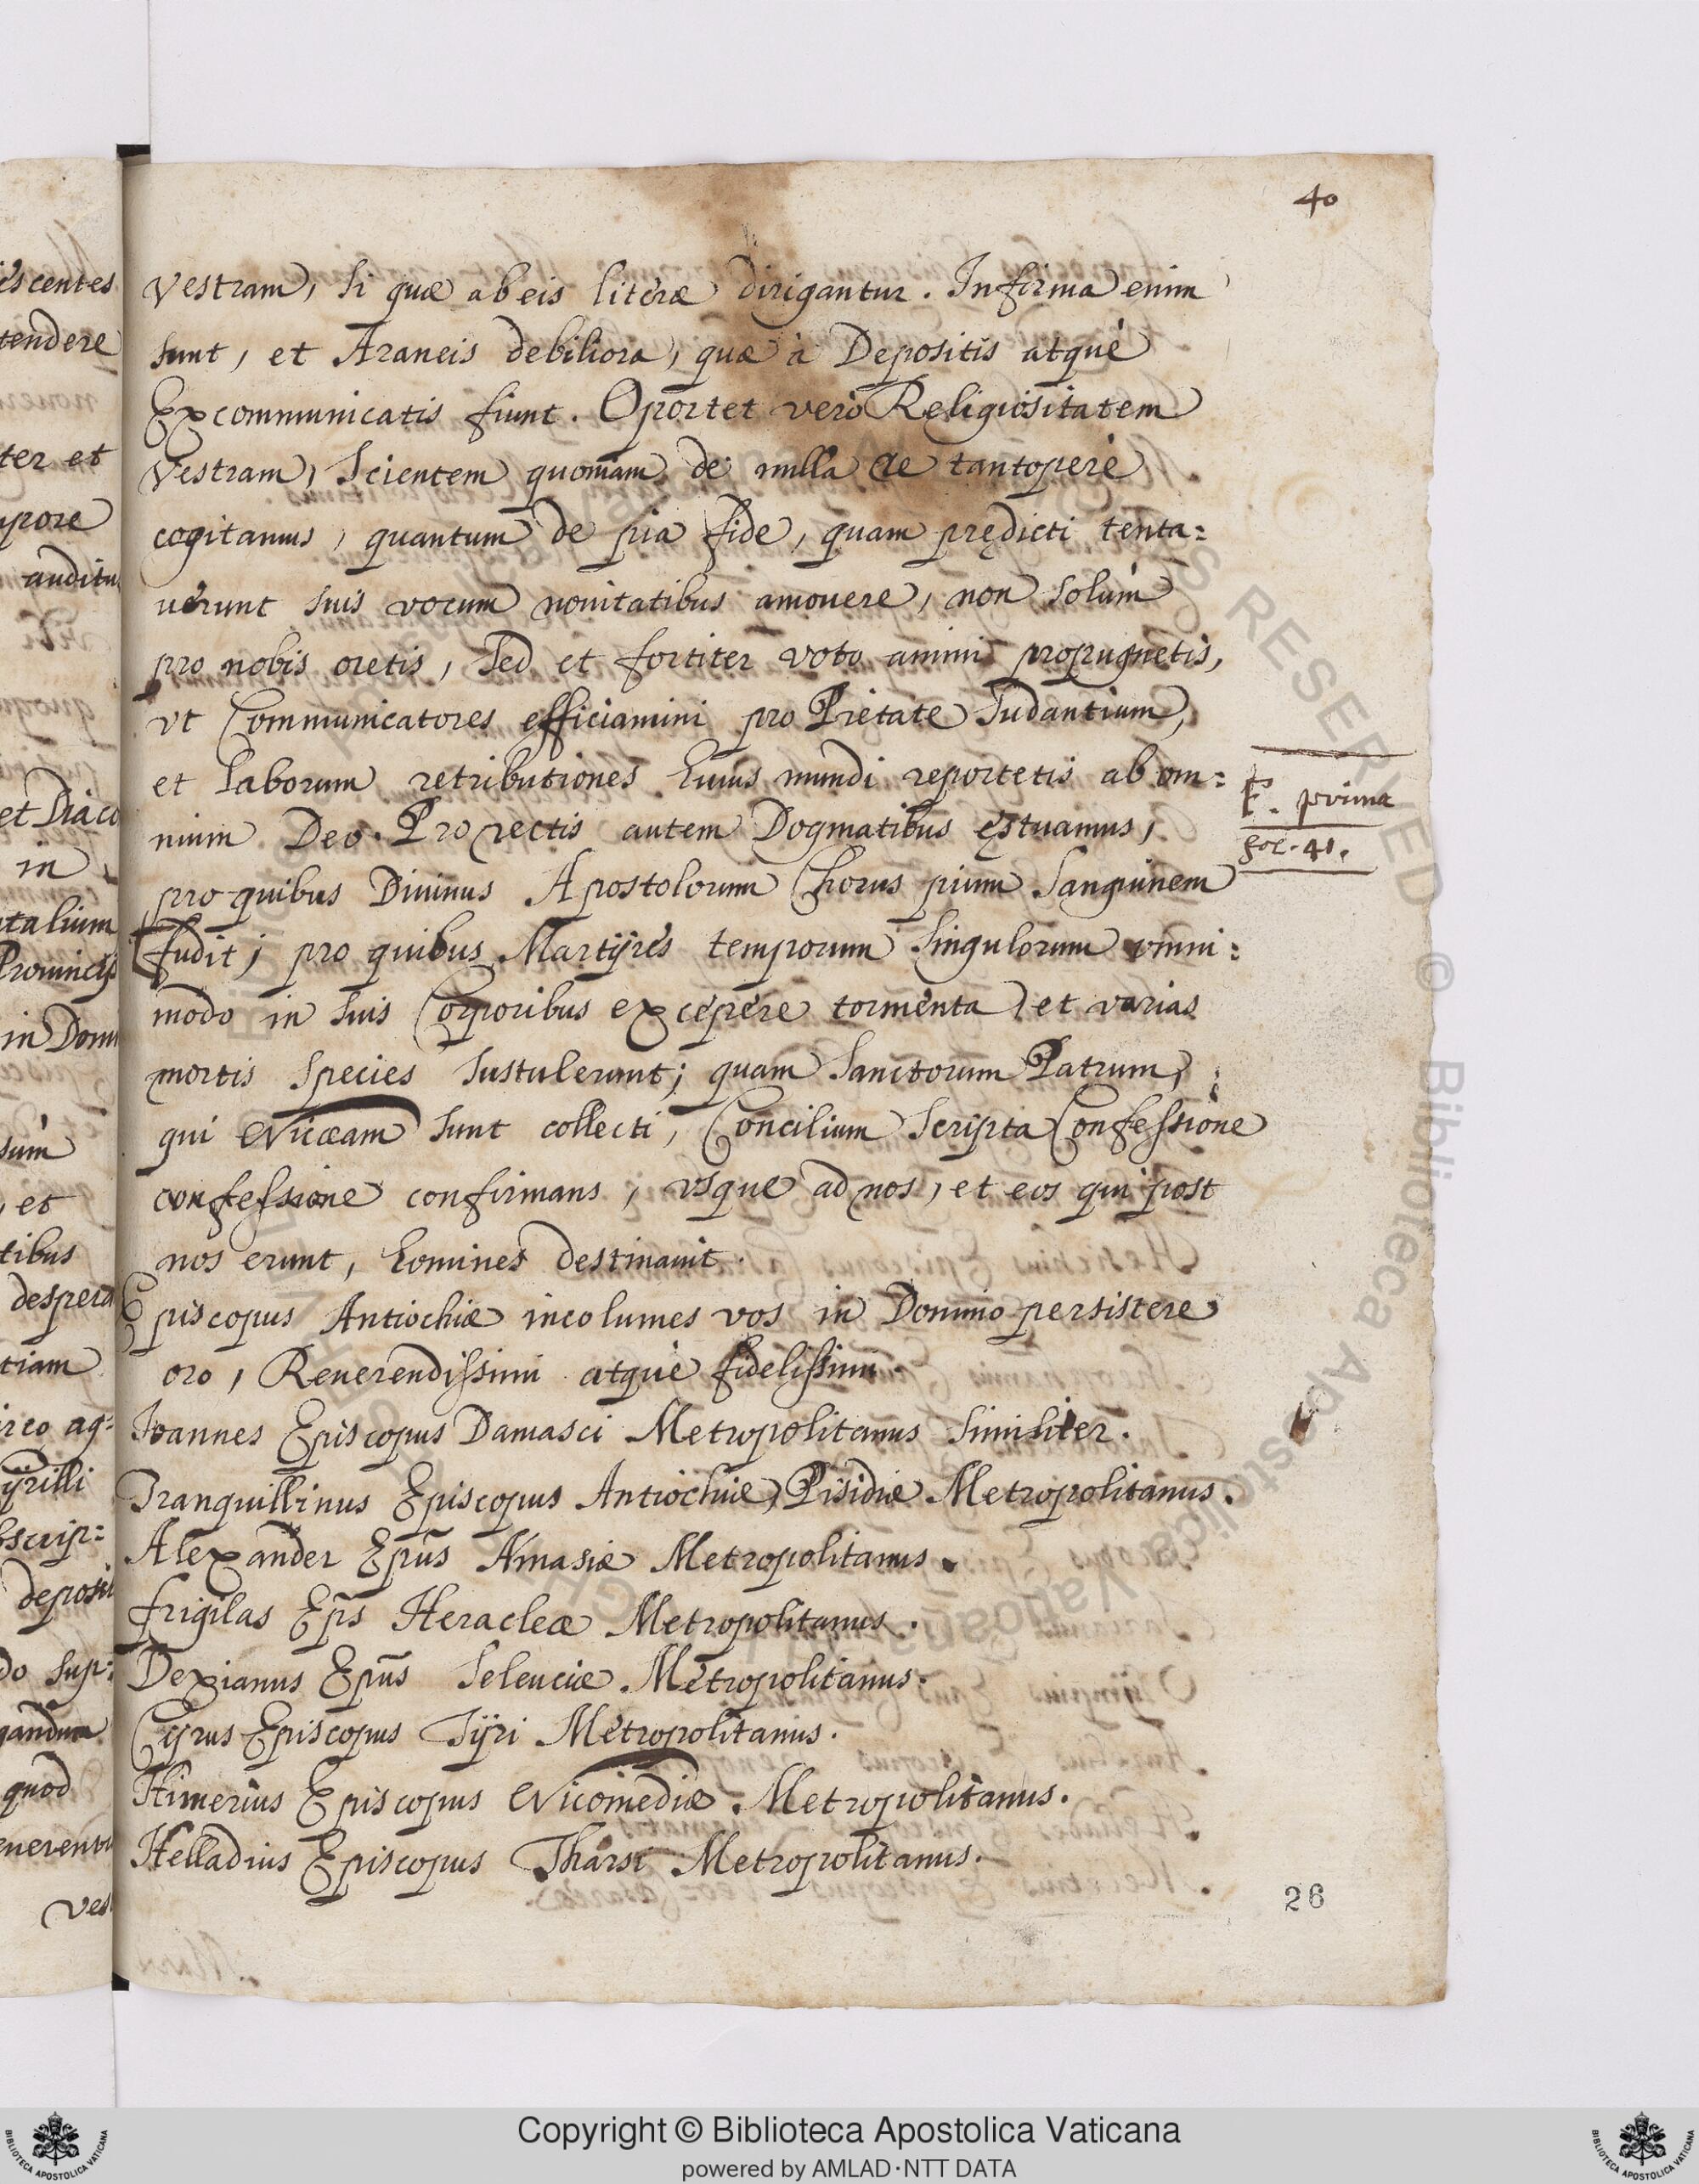 40
Vestram, si quæ ab eis literæ dirigantur. Infirma enim
sunt, et Araneis debiliora, quæ à Depositis atquè
Excommunicatis fiunt. Oportet verò Religiositatem
Vestram, Scientem quoniam de nulla re tantoperè
cogitamus, quantum de pia fide, quam prędicti tenta=
uerunt suis vocum nouitatibus amouere, non solùm
pro nobis oretis, sed et fortiter voto animi propugnetis,
vt Communicatores efficiamini pro Pietate Sudantium,
et laborum retributiones huius mundi reportetis ab om=
nium Deo. Pro rectis autem Dogmatibus ęstuamus,
pro quibus Diuinus Apostolorum Chorus pium Sanguinem
fudit; pro quibus Martÿres temporum singulorum omni=
modo in suis Corporibus excepere tormenta, et varias
mortis species sustulerunt; quam Sanctorum Patrum,
qui Nicæam sunt collecti, Concilium Scripta Confessione
confessione confirmans, vsque ad nos, et eos qui post
nos erunt, homines destinauit.
Episcopus Antiochiæ incolumes vos in Domino persistere
oro, Reuerendissimi atquè fidelissimi.
Ioannes Episcopus Damasci Metropolitanus similiter.
Tranquillinus Episcopus Antiochiæ Pisidiæ Metropolitanus.
Alexander Epūs Amasiæ Metropolitanus.
frigilas Ep̄s Heracleæ Metropolitanus.
Dexianus Epūs Seleuciæ Metropolitanus.
Cyrus Episcopus Tÿri Metropolitanus.
Himerius Episcopus Nicomediæ Metropolitanus.
Helladius Episcopus Tharsi Metropolitanus.
prima
fol. 41.
26
escentes
tendere
ter et
pore
auditu
et Diaco
in
talium
Prouincijs
in Dom
sùm
, et
tibus
despera
tiam
irco ag=
ÿrilli
bscrip=
deposit
do sup=
gandum
quod
euerenti
ves
Copyright © Biblioteca Apostolica Vaticana
powered by AMLAD·NTT DATA
BIBLIOTECA APOSTOLICA VATICANA
BIBLIOTECA APOSTOLICA VATICANA